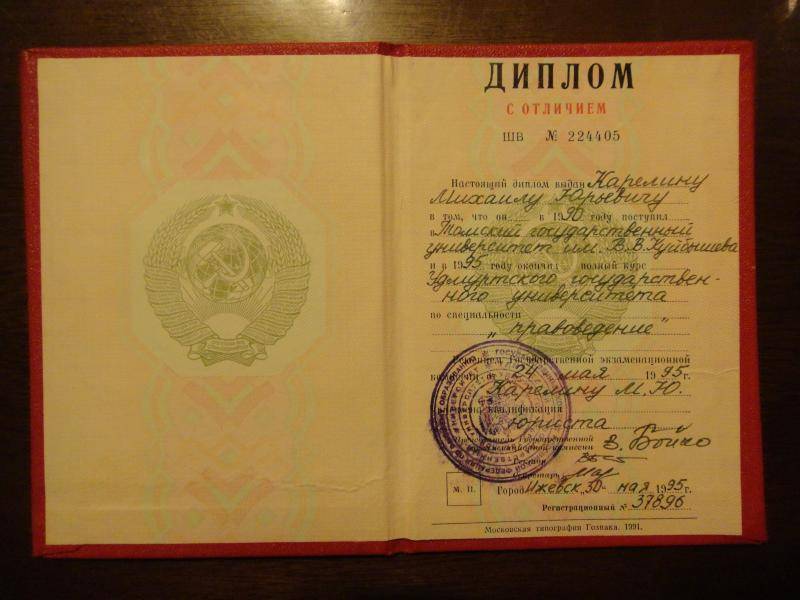 ДИПЛОМ
С ОТЛИЧИЕМ
ШВ № 224405
Настоящий диплом выдан Карелину
Михаилу Юрьевичу
в том, что он в 1990 году поступил
в Томский государственный
университет им. В.В. Куйбышева
и в 1995 году окончил полный курс
Удмуртского государствен-
ного университета
по специальности
„правоведение"
Решением Государственной экзаменационной
комиссии от 24 мая 1995 г.
Карелину М.Ю.
квалификация
юриста
Председатель Государственной
экзаменационной комиссии В. Бойко
Ректор
Секретарь
М. П. Город Ижевск „30" мая 1995 г.
Регистрационный № 37896
Московская типография Гознака. 1991.